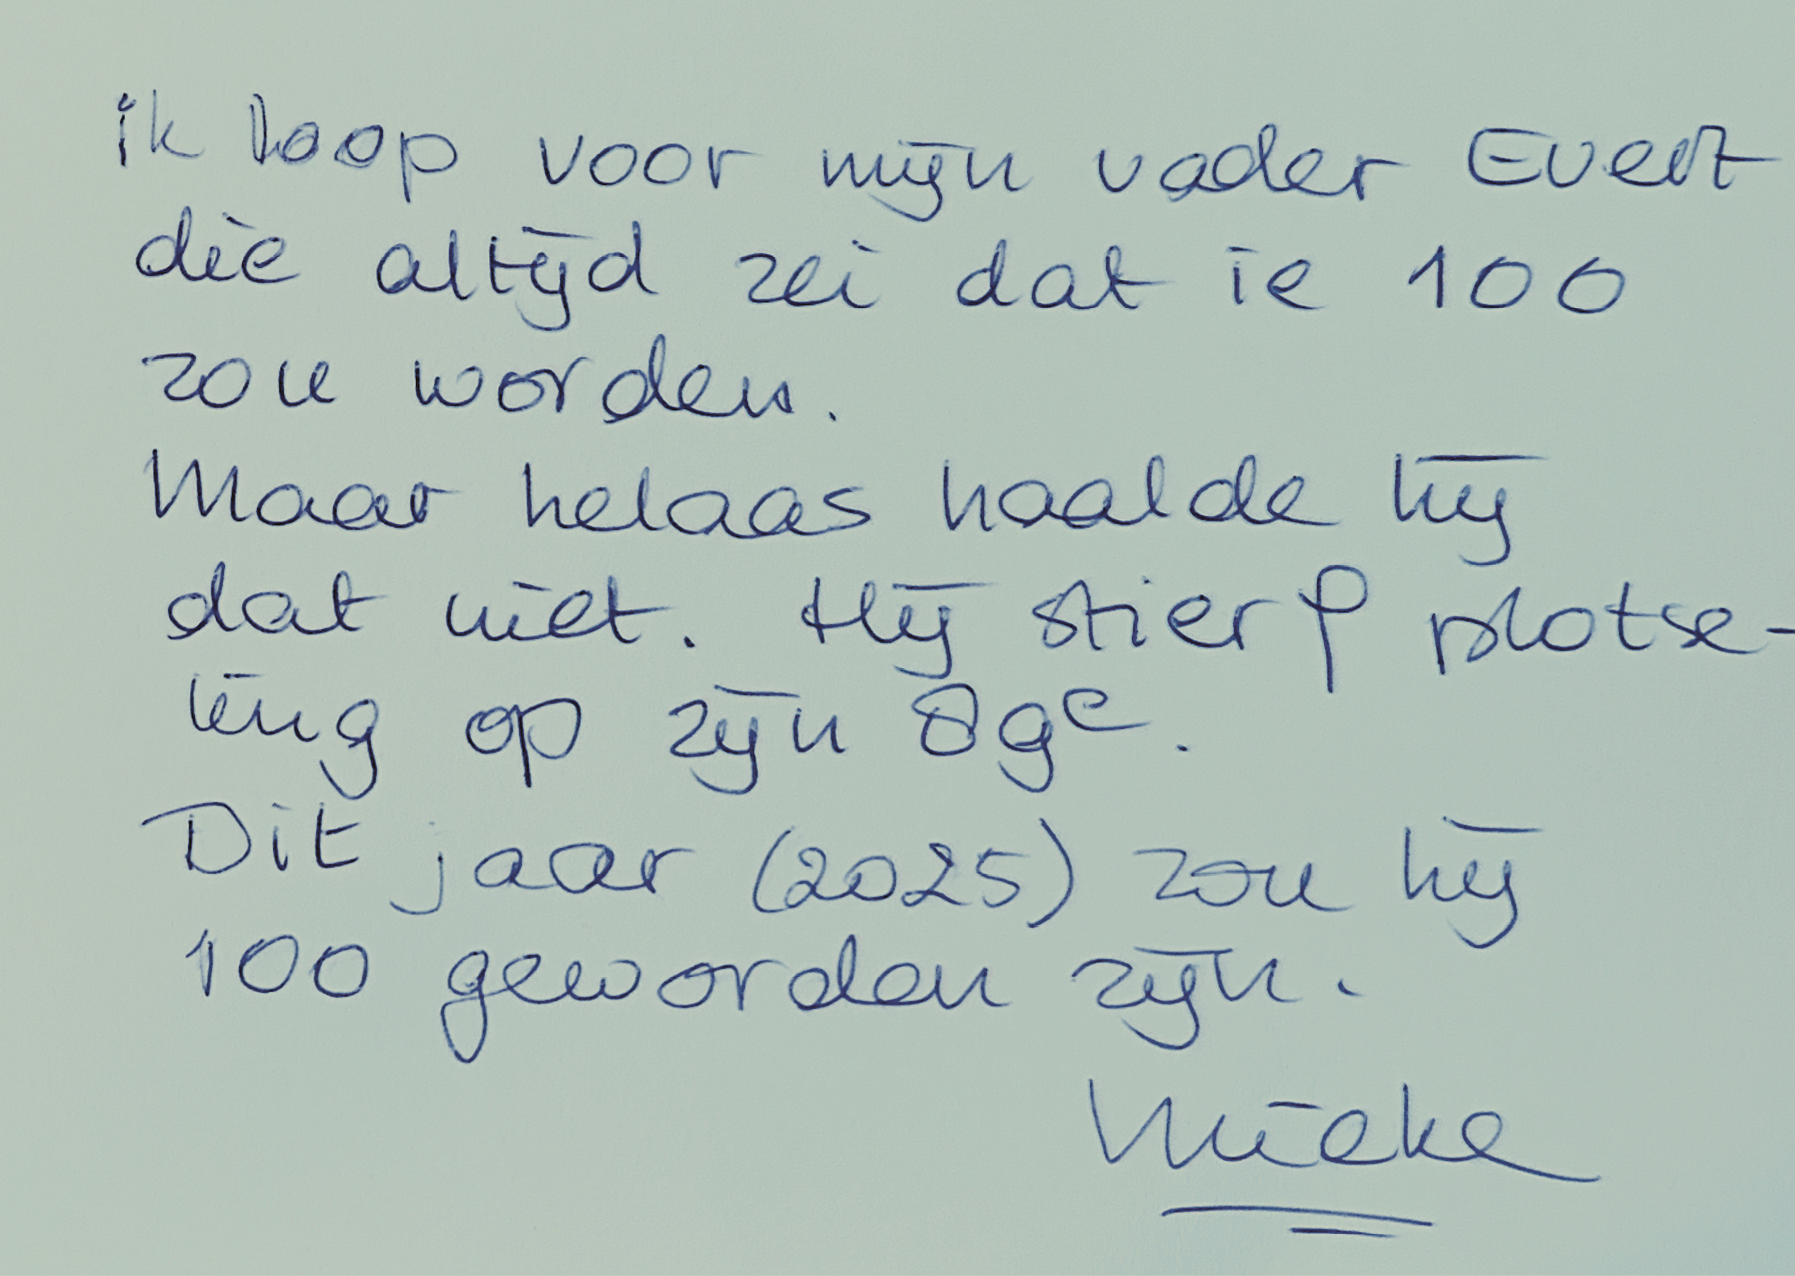 ik loop voor mijn vader Evert
die altijd zei dat ie 100
zou worden.
Maar helaas haalde hij
dat niet. Hij stierf plotse-
ling op zijn 89e.
Dit jaar (2025) zou hij
100 geworden zijn.
Mieke